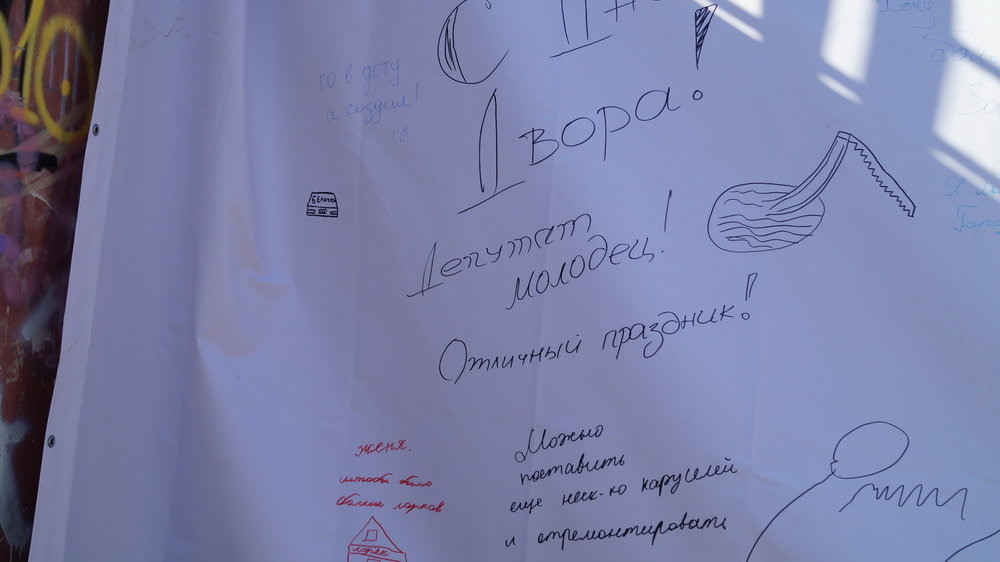 С Дн
Двора!
го в доту
а согуем!
го
белочка
Депутат
молодец!
Отличный праздник!
Женя.
штобы было
больше ларков
ларёк
Можно
поставить
еще неск-ко каруселей
и отремонтировать
Хочу
За
Я